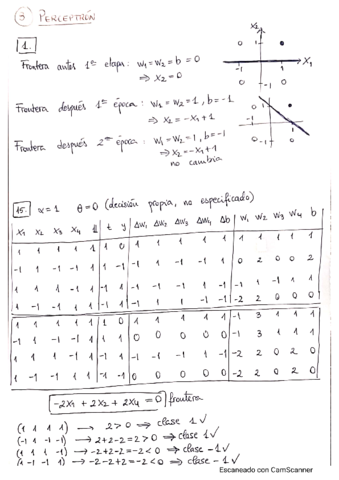 ③ PERCEPTRÓN
1.
Frontera antes 1ª etapa: w1 = w2 = b = 0
⇒ x2 = 0
Frontera después 1ª época: w1 = w2 = 1, b = -1
⇒ x2 = -x1 + 1
Frontera después 2ª época: w1 = w2 = 1, b = -1
⇒ x2 = -x1 + 1
no cambia
15. α = 1 θ = 0 (decisión propia, no especificado)
x1 x2 x3 x4 1 t y Δw1 Δw2 Δw3 Δw4 Δb w1 w2 w3 w4 b
1 1 1 1 1 1 0 1 1 1 1 1 1 1 1 1 1
-1 1 -1 -1 1 1 -1 -1 1 -1 -1 1 0 2 0 0 2
1 1 1 -1 1 -1 1 -1 -1 -1 1 -1 -1 1 -1 1 1
1 -1 -1 1 1 -1 1 -1 1 1 -1 -1 -2 2 0 0 0
1 1 1 1 1 1 0 1 1 1 1 1 -1 3 1 1 1
-1 1 -1 -1 1 1 1 0 0 0 0 0 -1 3 1 1 1
1 1 1 -1 1 -1 1 -1 -1 -1 1 -1 -2 2 0 2 0
1 -1 -1 1 1 -1 -1 0 0 0 0 0 -2 2 0 2 0
-2x1 + 2x2 + 2x4 = 0 frontera
(1 1 1 1) → 2 > 0 ⇒ clase 1 ✓
(-1 1 -1 -1) → 2+2-2 = 2 > 0 ⇒ clase 1 ✓
(1 1 1 -1) → -2+2-2 = -2 < 0 ⇒ clase -1 ✓
(1 -1 -1 1) → -2-2+2 = -2 < 0 ⇒ clase -1 ✓
Escaneado con CamScanner